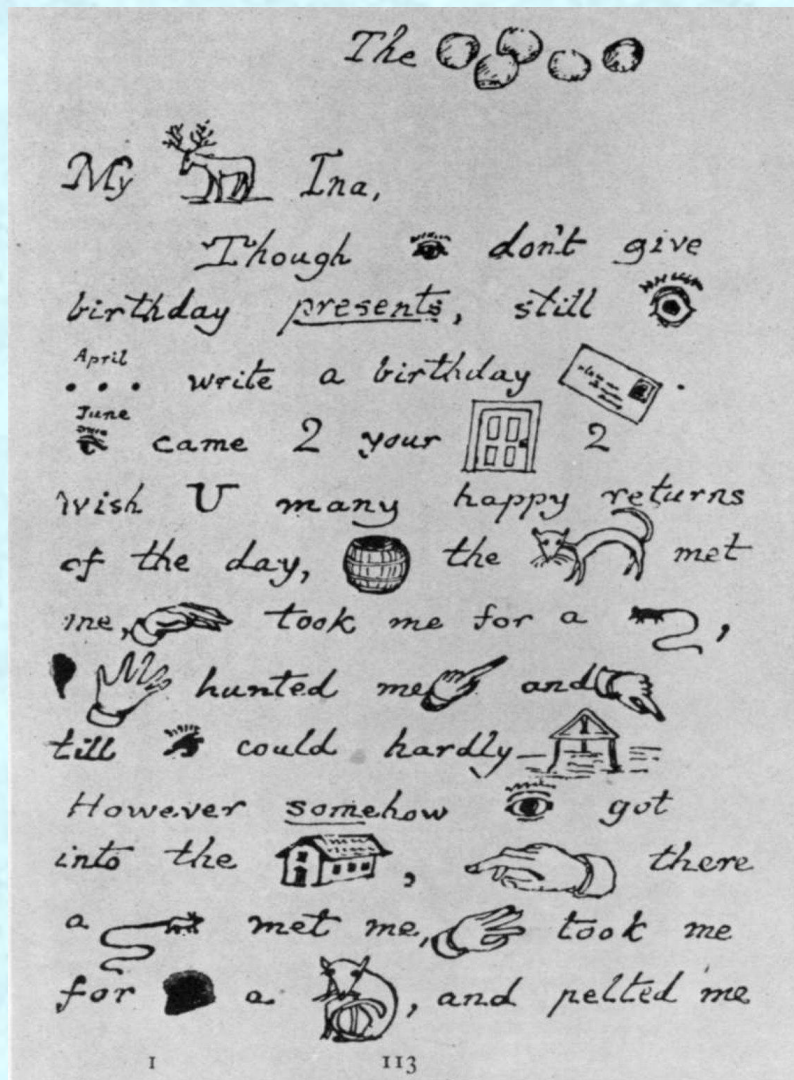 The
My Ina,
Though don't give
birthday presents, still
April
... write a birthday .
June
came 2 your 2
wish U many happy returns
of the day, the met
me, took me for a ,
hunted me and
till could hardly
However somehow got
into the , there
a met me, took me
for a , and pelted me
I 113